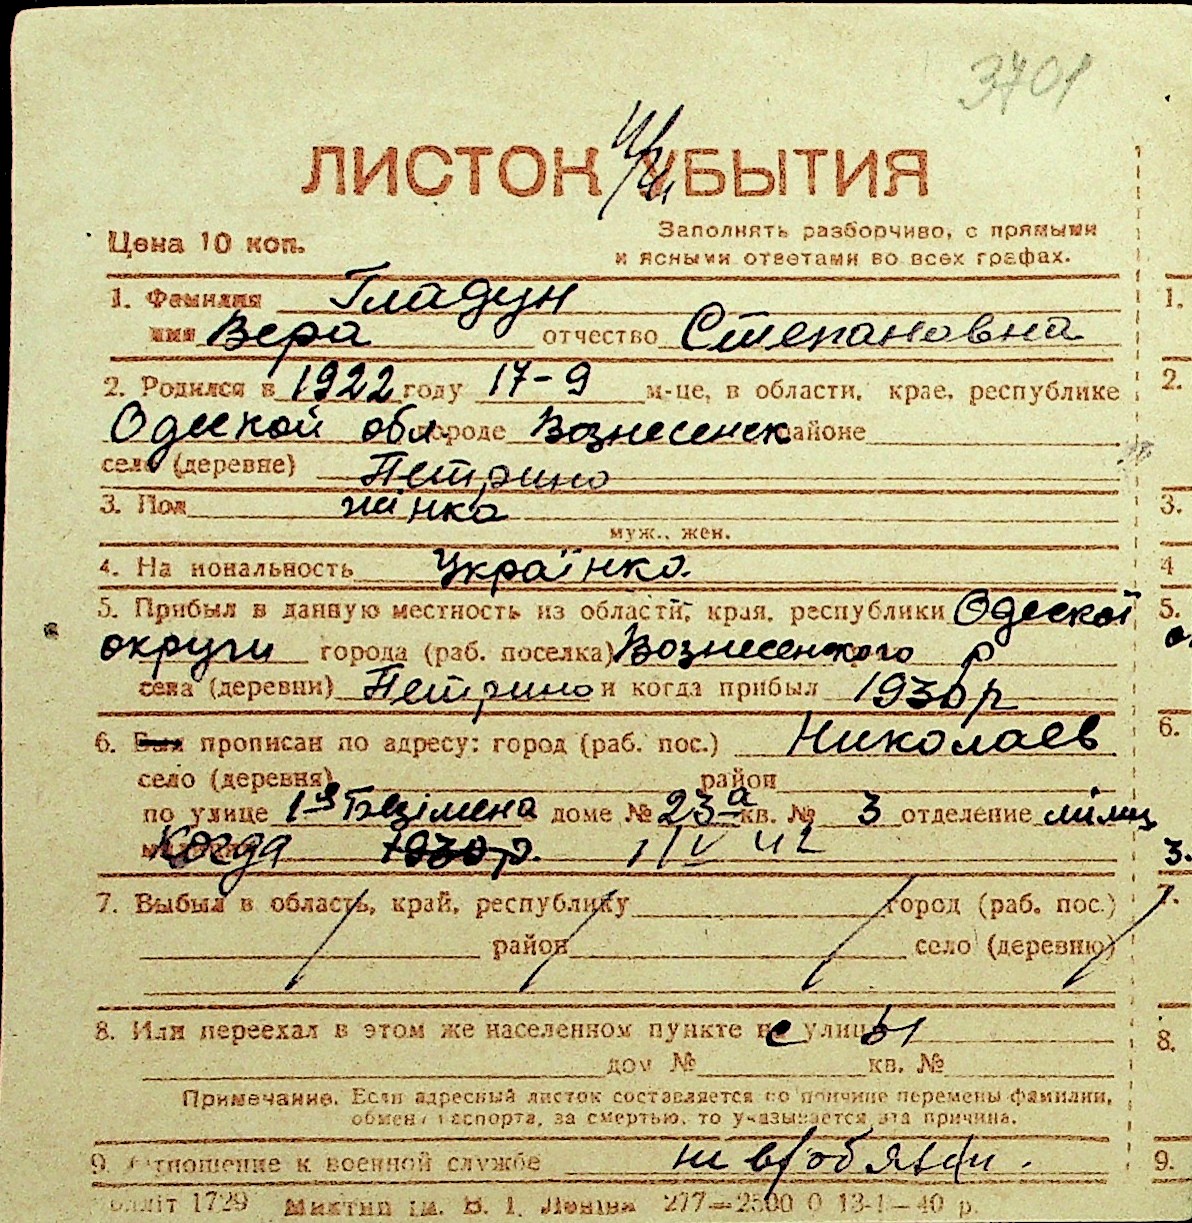 3701
ЛИСТОК УБЫТИЯ
Цена 10 коп.
Заполнять разборчиво, с прямыми
и ясными ответами во всех графах.
1. Фамилия Гладун
имя Вера отчество Степановна
2. Родился в 1922 году 17-9 м-це, в области, крае, республике
Одеской обл. городе Вознесенск районе
село (деревне) Петрино
3. Пол жінка
муж., жен.
4. На иональность Українка.
5. Прибыл в данную местность из области, края, республики Одеской
округи города (раб. поселка) Вознесенского р
села (деревни) Петрино и когда прибыл 1930 р
6. Был прописан по адресу: город (раб. пос.) Николаев
село (деревня) район
по улице 1ая Безімена доме № 23а кв. № 3 отделение міліц
Когда 1930 р. 1/IV 42
7. Выбыл в область, край, республику город (раб. пос.)
район село (деревню)
8. Или переехал в этом же населенном пункте с улицы
дом № кв. №
Примечание. Если адресный листок составляется по причине перемены фамилии,
обмен паспорта, за смертью, то указывается эта причина.
9. Отношение к военной службе не в/обязан.
1729 им. В. І. Леніна 277—2500 0 13-1—40 р.
1.
2.
3.
4
5.
6.
3.
7.
8.
9.